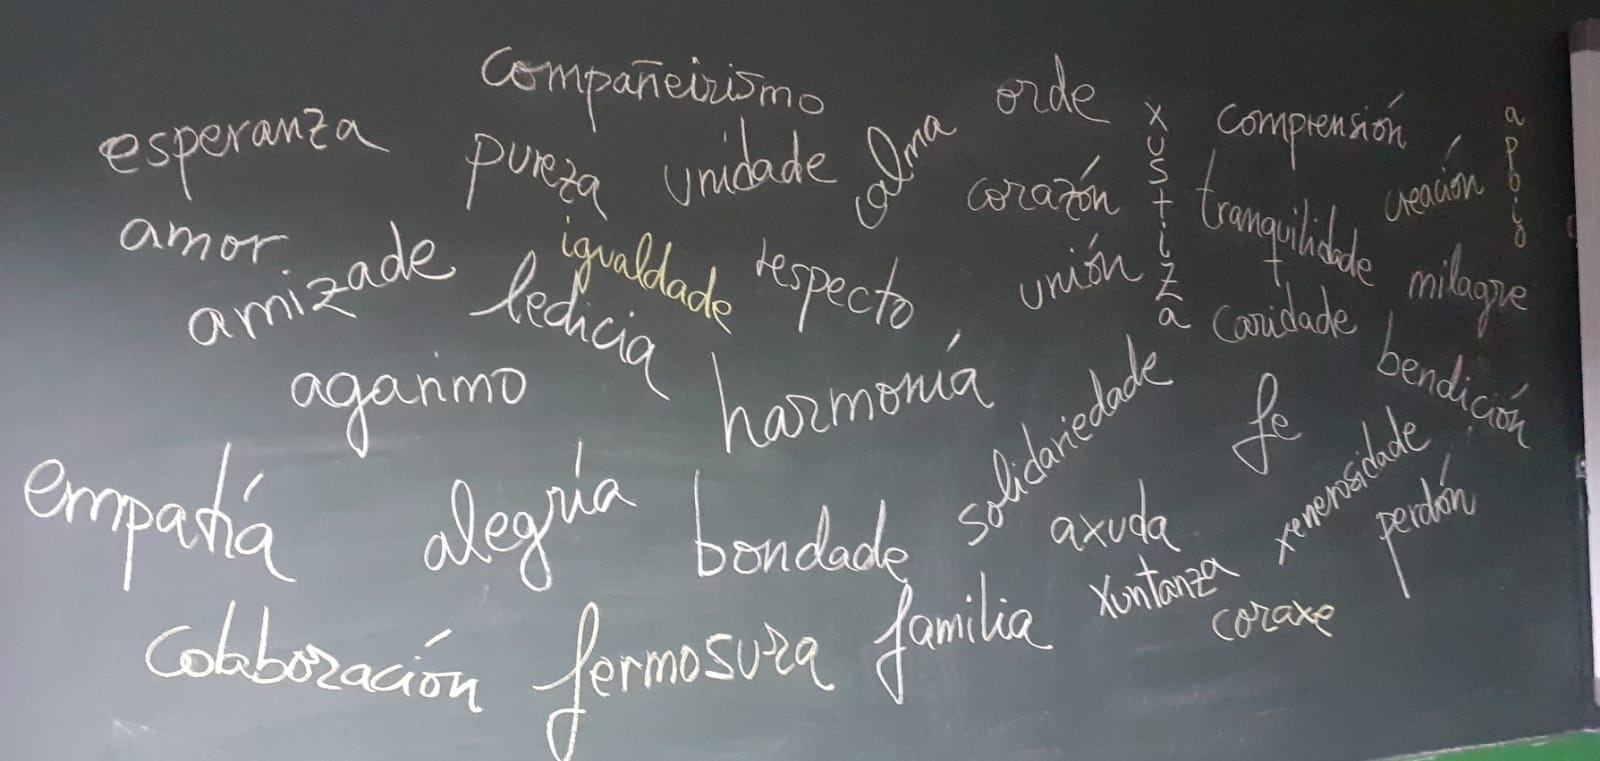 compañeirismo
orde
esperanza
pureza
unidade
alma
xustiza
comprensión
apoio
amor
corazón
tranquilidade
creación
amizade
igualdade
respecto
unión
milagre
ledicia
caridade
agarimo
harmonía
bendición
solidariedade
fe
empatía
alegría
bondade
axuda
xenerosidade
perdón
colaboración
fermosura
familia
xuntanza
coraxe